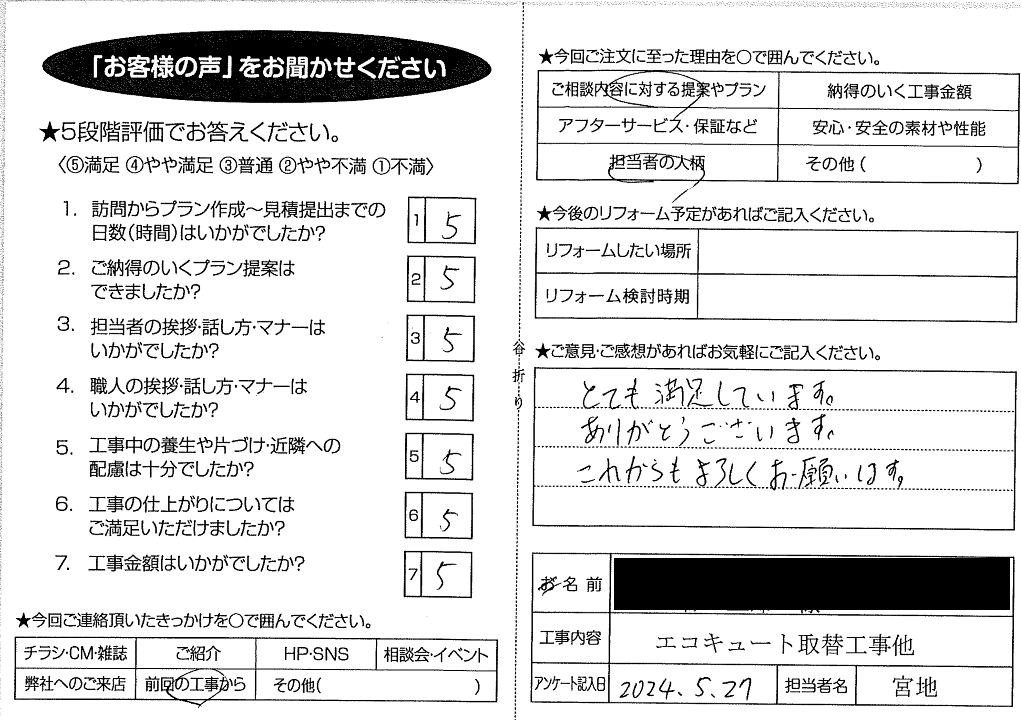 「お客様の声」をお聞かせください
★5段階評価でお答えください。
〈⑤満足 ④やや満足 ③普通 ②やや不満 ①不満〉
1. 訪問からプラン作成～見積提出までの
日数(時間)はいかがでしたか?
1 5
2. ご納得のいくプラン提案は
できましたか?
2 5
3. 担当者の挨拶・話し方・マナーは
いかがでしたか?
3 5
4. 職人の挨拶・話し方・マナーは
いかがでしたか?
4 5
5. 工事中の養生や片づけ・近隣への
配慮は十分でしたか?
5 5
6. 工事の仕上がりについては
ご満足いただけましたか?
6 5
7. 工事金額はいかがでしたか?
7 5
★今回ご連絡頂いたきっかけを○で囲んでください。
チラシ・CM・雑誌 ご紹介 HP・SNS 相談会・イベント
弊社へのご来店 前回の工事から その他( )
谷折り
★今回ご注文に至った理由を○で囲んでください。
ご相談内容に対する提案やプラン 納得のいく工事金額
アフターサービス・保証など 安心・安全の素材や性能
担当者の人柄 その他( )
★今後のリフォーム予定があればご記入ください。
リフォームしたい場所
リフォーム検討時期
★ご意見・ご感想があればお気軽にご記入ください。
とても満足しています。
ありがとうございます。
これからもよろしくお願いします。
お名前
工事内容 エコキュート取替工事他
アンケート記入日 2024.5.27 担当者名 宮地